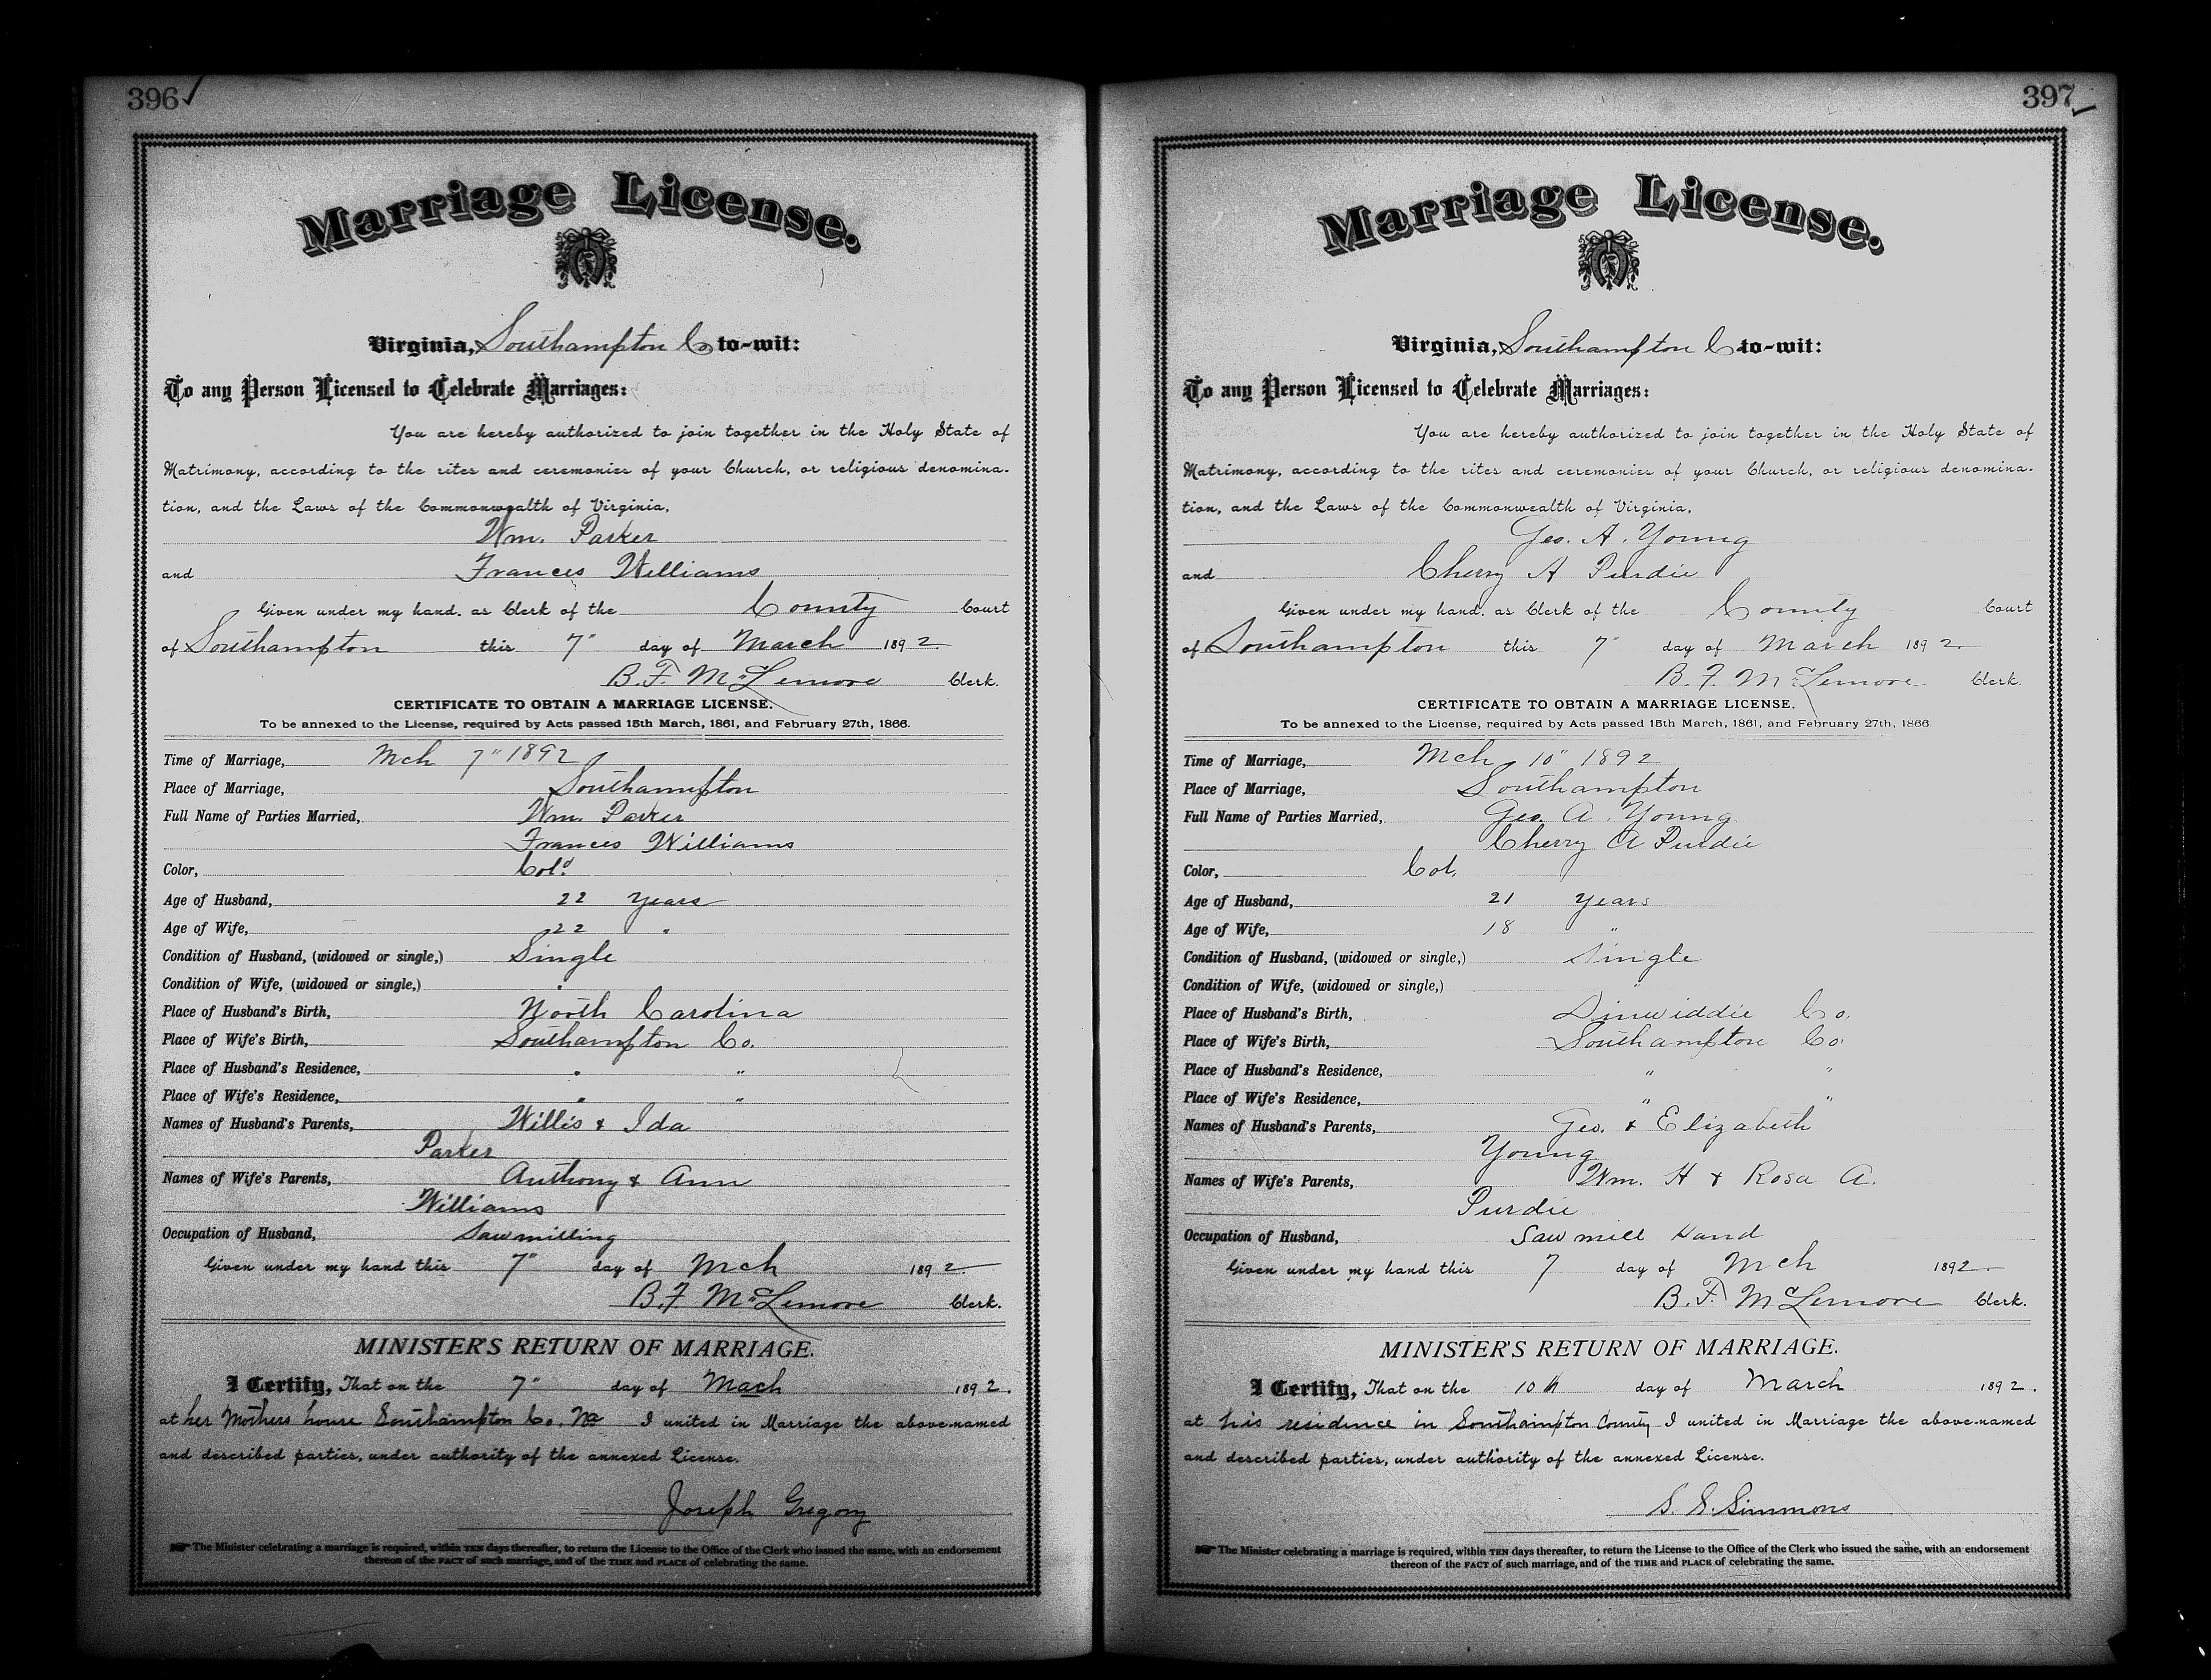 396
Marriage License.
Virginia, Southampton Co to-wit:
To any Person Licensed to Celebrate Marriages:
You are hereby authorized to join together in the Holy State of
Matrimony, according to the rites and ceremonies of your Church, or religious denomina-
tion, and the Laws of the Commonwealth of Virginia,
Wm. Parker
and Frances Williams
Given under my hand, as Clerk of the County Court
of Southampton this 7" day of March 1892.
B. F. McLemore Clerk.
CERTIFICATE TO OBTAIN A MARRIAGE LICENSE.
To be annexed to the License, required by Acts passed 15th March, 1861, and February 27th, 1866.
Time of Marriage, Mch 7" 1892
Place of Marriage, Southampton
Full Name of Parties Married, Wm. Parker
Frances Williams
Color, Cold
Age of Husband, 22 Years
Age of Wife, 22 "
Condition of Husband, (widowed or single,) Single
Condition of Wife, (widowed or single,) "
Place of Husband's Birth, North Carolina
Place of Wife's Birth, Southampton Co.
Place of Husband's Residence, " "
Place of Wife's Residence, " "
Names of Husband's Parents, Willis & Ida
Parker
Names of Wife's Parents, Anthony & Ann
Williams
Occupation of Husband, Sawmilling
Given under my hand this 7" day of Mch 1892.
B. F. McLemore Clerk.
MINISTER'S RETURN OF MARRIAGE.
I Certify, That on the 7" day of Mach 1892.
at her Mothers house Southampton Co. Va I united in Marriage the above-named
and described parties, under authority of the annexed License.
Joseph Gregory
The Minister celebrating a marriage is required, within TEN days thereafter, to return the License to the Office of the Clerk who issued the same, with an endorsement
thereon of the FACT of such marriage, and of the TIME and PLACE of celebrating the same.
397
Marriage License.
Virginia, Southampton C to-wit:
To any Person Licensed to Celebrate Marriages:
You are hereby authorized to join together in the Holy State of
Matrimony, according to the rites and ceremonies of your Church, or religious denomina-
tion, and the Laws of the Commonwealth of Virginia,
Geo. A. Young
and Cherry A Purdie
Given under my hand, as Clerk of the County Court
of Southampton this 7" day of March 1892.
B. F. McLemore Clerk.
CERTIFICATE TO OBTAIN A MARRIAGE LICENSE.
To be annexed to the License, required by Acts passed 15th March, 1861, and February 27th, 1866.
Time of Marriage, Mch 10" 1892
Place of Marriage, Southampton
Full Name of Parties Married, Geo. A. Young
Cherry A Purdie
Color, Col.
Age of Husband, 21 Years
Age of Wife, 18 "
Condition of Husband, (widowed or single,) Single
Condition of Wife, (widowed or single,) "
Place of Husband's Birth, Dinwiddie Co.
Place of Wife's Birth, Southampton Co.
Place of Husband's Residence, " "
Place of Wife's Residence, " "
Names of Husband's Parents, Geo. & Elizabeth
Young
Names of Wife's Parents, Wm. H & Rosa A.
Purdie
Occupation of Husband, Saw mill Hand
Given under my hand this 7 day of Mch 1892.
B. F. McLemore Clerk.
MINISTER'S RETURN OF MARRIAGE.
I Certify, That on the 10th day of March 1892.
at his residence in Southampton County I united in Marriage the above-named
and described parties, under authority of the annexed License.
S. S. Simmons
The Minister celebrating a marriage is required, within TEN days thereafter, to return the License to the Office of the Clerk who issued the same, with an endorsement
thereon of the FACT of such marriage, and of the TIME and PLACE of celebrating the same.